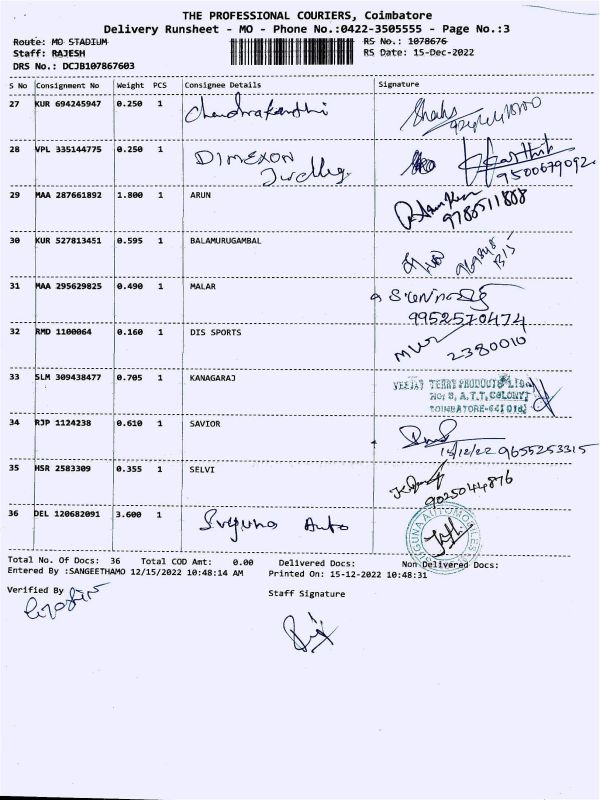 THE PROFESSIONAL COURIERS, Coimbatore
Delivery Runsheet - MO - Phone No.:0422-3505555 - Page No.:3
Route: MO STADIUM RS No.: 1078676
Staff: RAJESH RS Date: 15-Dec-2022
DRS No.: DCJB107867603
S No Consignment No Weight PCS Consignee Details Signature
27 KUR 694245947 0.250 1 Chandrakanthi
28 VPL 335144775 0.250 1 DIMEXON
9500679092
29 MAA 287661892 1.800 1 ARUN
9788511888
30 KUR 527813451 0.595 1 BALAMURUGAMBAL
31 MAA 295629825 0.490 1 MALAR
9952570474
32 RMD 1100064 0.160 1 DIS SPORTS 2380010
33 SLM 309438477 0.705 1 KANAGARAJ VEEJAY TERRY PRODUCTS
NO: 8, A.T.T. COLONY,
COIMBATORE-641 018
34 RJP 1124238 0.610 1 SAVIOR
15/12/22 9655253315
35 HSR 2583309 0.355 1 SELVI
9025044876
36 DEL 120682091 3.600 1 Suguna Auto SUGUNA AUTOMOBILES
Total No. Of Docs: 36 Total COD Amt: 0.00 Delivered Docs: Non Delivered Docs:
Entered By :SANGEETHAMO 12/15/2022 10:48:14 AM Printed On: 15-12-2022 10:48:31
Verified By Staff Signature